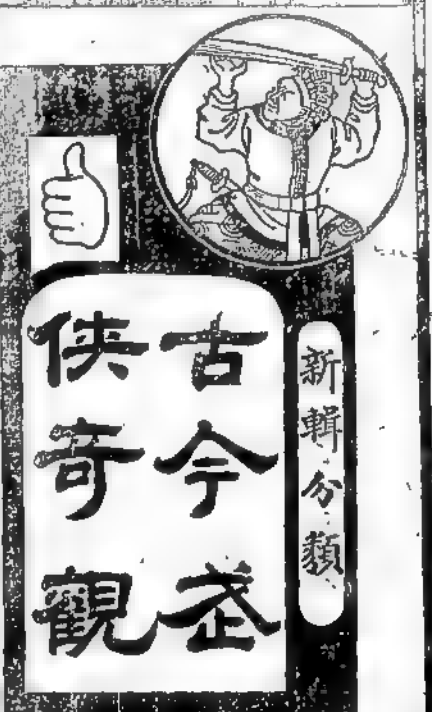 新輯分類
古今武
俠奇觀